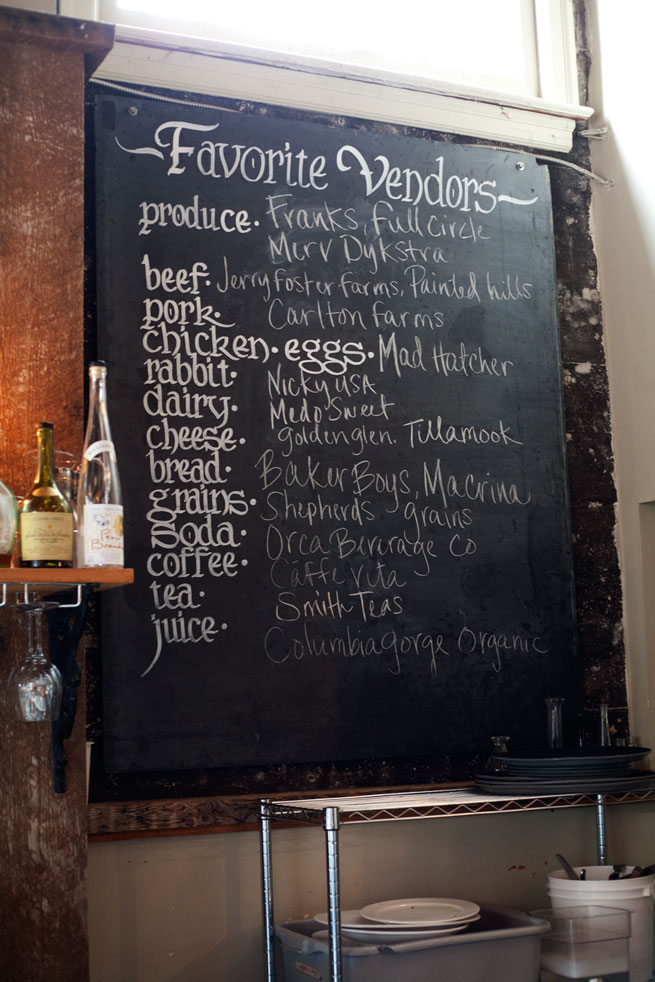 Favorite Vendors
produce. Franks, full circle
Merv Dykstra
beef. Jerry foster farms, Painted hills
pork. Carlton farms
chicken. eggs. Mad Hatcher
rabbit. Nicky USA
dairy. Medo Sweet
cheese. goldenglen. Tillamook
bread. Baker Boys, Macrina
grains. Shepherds grains
soda. Orca Beverage Co
coffee. Caffe vita
tea. Smith Teas
juice. Columbia gorge Organic